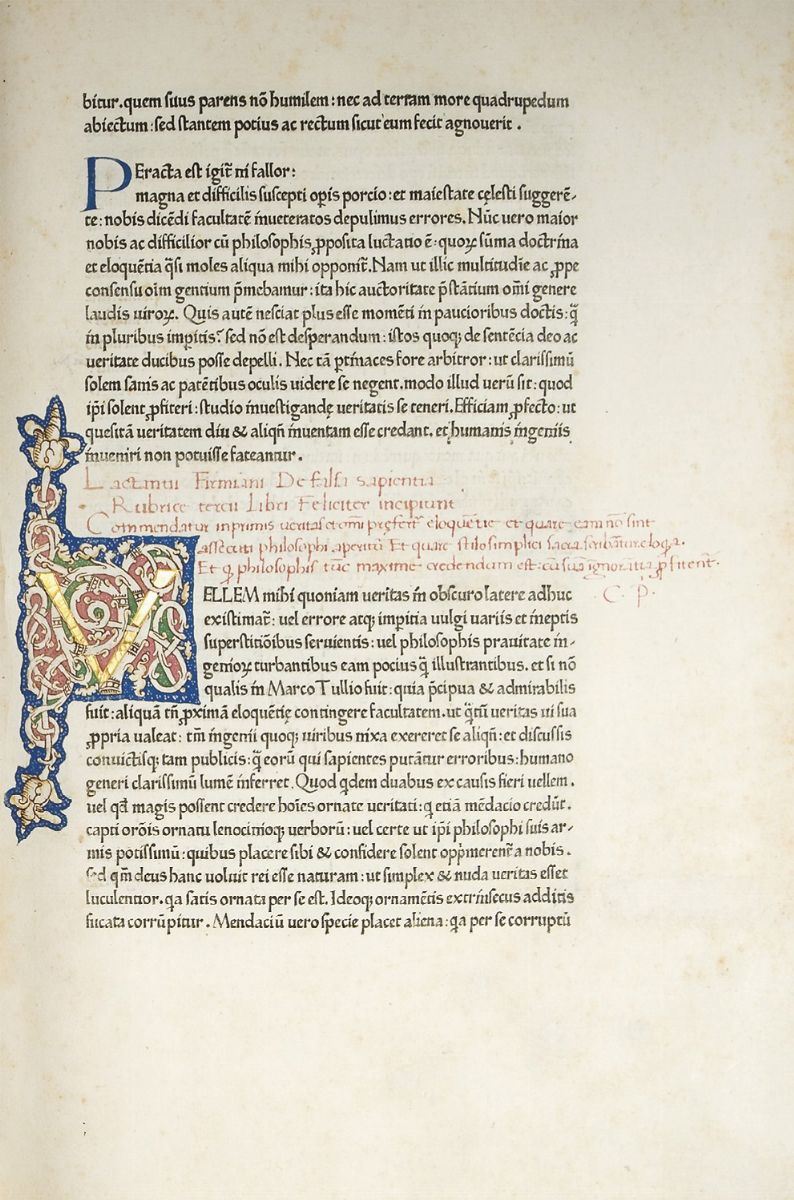 bitur.quem suus parens nō humilem:nec ad terram more quadrupedum
abiectum:sed stantem potius ac rectum sicut eum fecit agnouerit .
PEracta est igit̃ ni fallor:
magna et difficilis suscepti op̄is porcio:et maiestate cęlesti suggerē-
te:nobis dicēdi facultatē inueteratos depulimus errores. Nūc uero maior
nobis ac difficilior cū philosophis ꝓposita luctatio ē:quoꝝ sūma doctrina
et eloquētia q̄si moles aliqua mihi opponit̃.Nam ut illic multitudīe ac ꝓpe
consensu oīm gentium p̄mebamur:ita hic auctoritate p̄stātium omī genere
laudis uiroꝝ. Quis autē nesciat plus esse momēti in paucioribus doctis:q̄
in pluribus impitis? sed nō est desperandum:istos quoqꝫ de sentēcia deo ac
ueritate ducibus posse depelli. Nec tā ꝑtinaces fore arbitror:ut clarissimū
solem sanis ac patētibus oculis uidere se negent.modo illud uerū sit:quod
ip̄i solent ꝓfiteri:studio inuestigandę ueritatis se teneri.Efficiam ꝓfecto:ut
quesitā ueritatem diu & aliqn̄ inuentam esse credant. et humanis ingeniis
inueniri non potuisse fateantur.
Lactantii Firmiani De falsa sapientia
Rubrice tercii Libri Feliciter incipiunt
Commendatur inprimis ueritas et omī prefert̃ eloquētie et quare eam nō sint
assecuti philosophi aperitū Et quare stilo simplici sacra scribātur eloq̄a.
Et q philosophis tūc maxime credendum est:cū sua ignorātia ꝓfitent̃.
C. P.
VELLEM mihi quoniam ueritas in obscuro latere adhuc
existimat̃:uel errore atqꝫ impitia uulgi uariis et ineptis
superstitiōibus seruientis:uel philosophis prauitate in-
genioꝝ turbantibus eam pocius q̄ illustrantibus. et si nō
qualis in Marco Tullio fuit:quia p̄cipua & admirabilis
fuit:aliquā tn̄ ꝓximā eloquētię contingere facultatem.ut q̄tū ueritas ui sua
ꝓpria ualeat:tm̄ ingenii quoqꝫ uiribus nixa exereret se aliqn̄:et discussis
conuictisqꝫ tam publicis:q̄ eorū qui sapientes putātur erroribus:humano
generi clarissimū lumē inferret. Quod q̄dem duabus ex causis fieri uellem.
uel qd̄ magis possent credere hoīes ornate ueritati:q etiā mēdacio credūt.
capti orōis ornatu lenocinioqꝫ uerborū:uel certe ut ip̄i philosophi suis ar-
mis potissimū:quibus placere sibi & confidere solent opp̄merent̃ a nobis.
Sed qm̄ deus hanc uoluit rei esse naturam:ut simplex & nuda ueritas esset
luculentior.q̄a satis ornata per se est.Ideoqꝫ ornamētis extrinsecus additis
fucata corrūpitur. Mendaciū uero specie placet aliena:q̄a per se corruptū